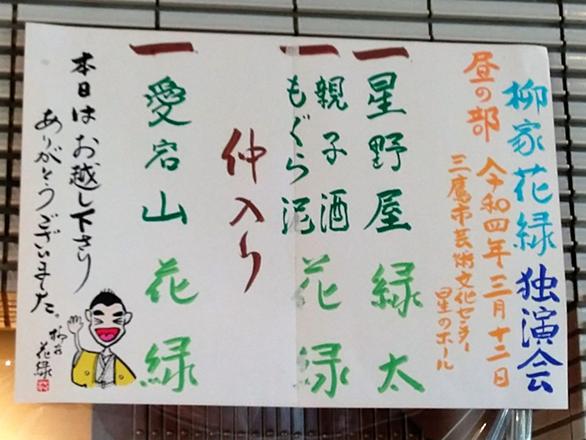 柳家花緑独演会
昼の部 令和四年三月十二日
三鷹市芸術文化センター
星のホール
一 星野屋 緑太
一 親子酒
もぐら泥 花緑
仲入り
一 愛宕山 花緑
本日はお越し下さり
ありがとうございました。
柳家花緑